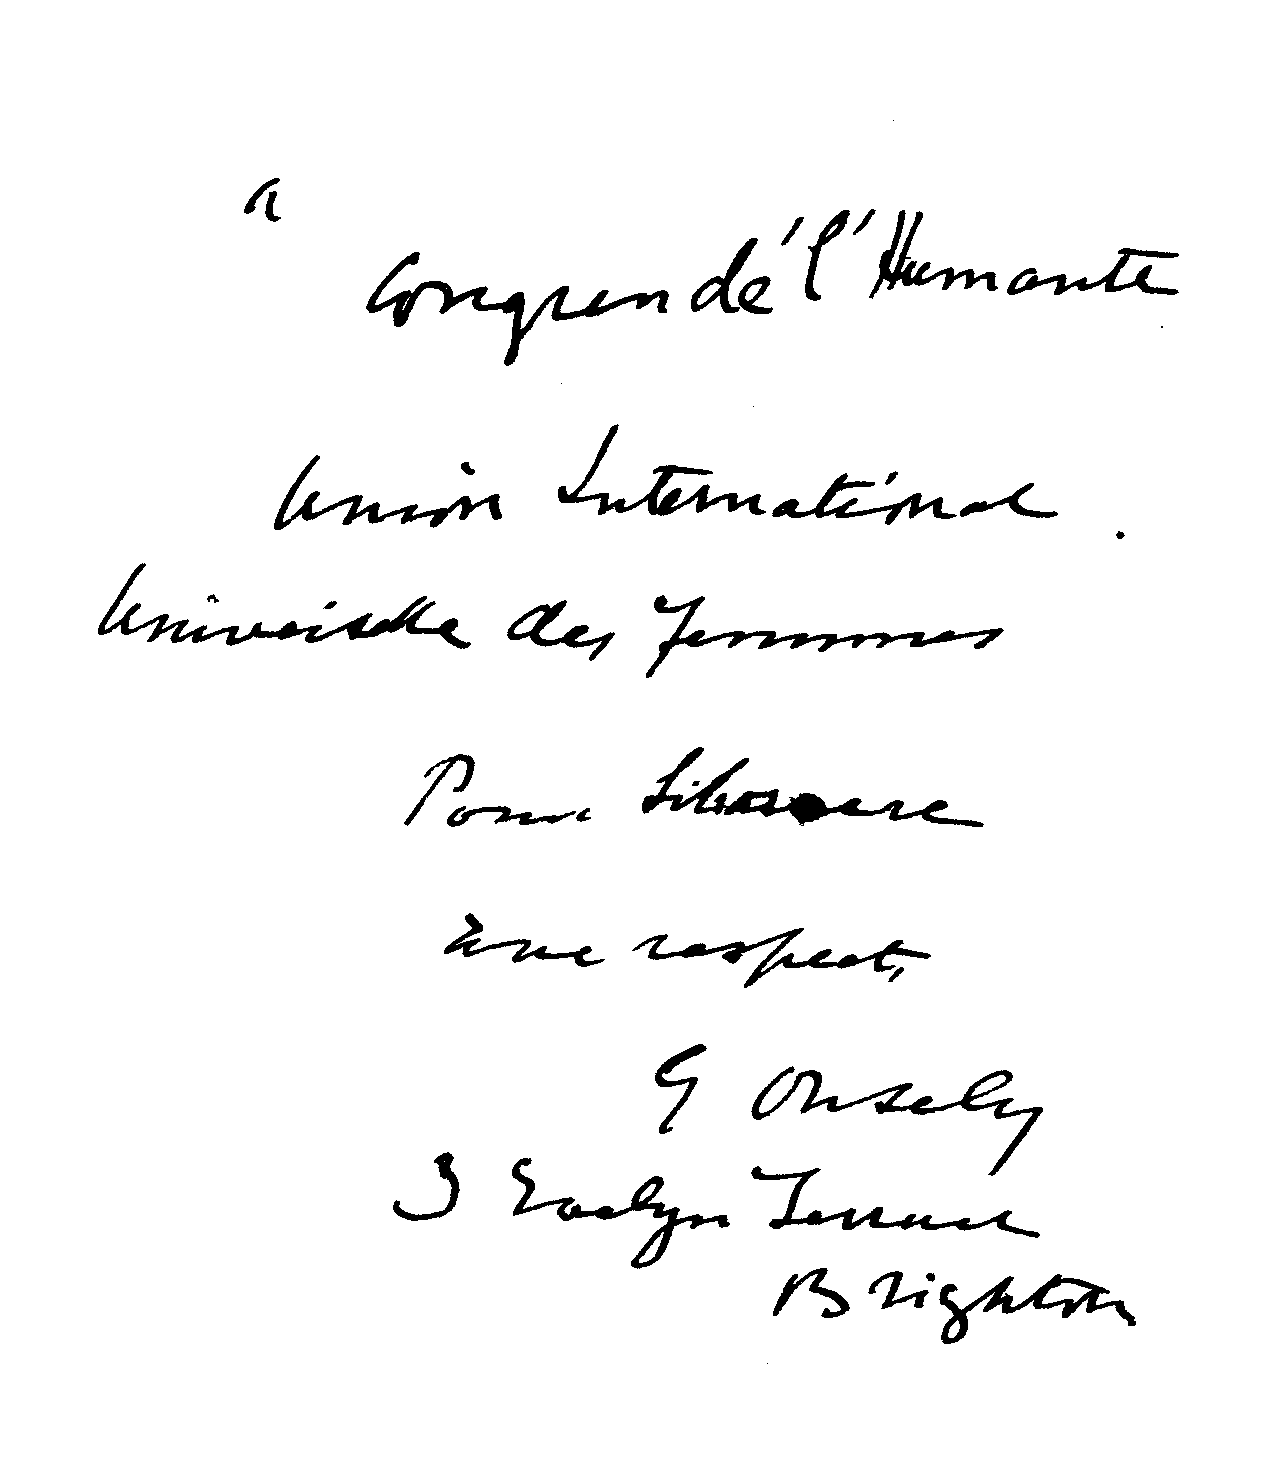 a
Congrèn dé l'Humanité
Union International
Universelle des Femmes
Pour
une respect,
G Onsely
3 Evelyn Terrace
Brighton